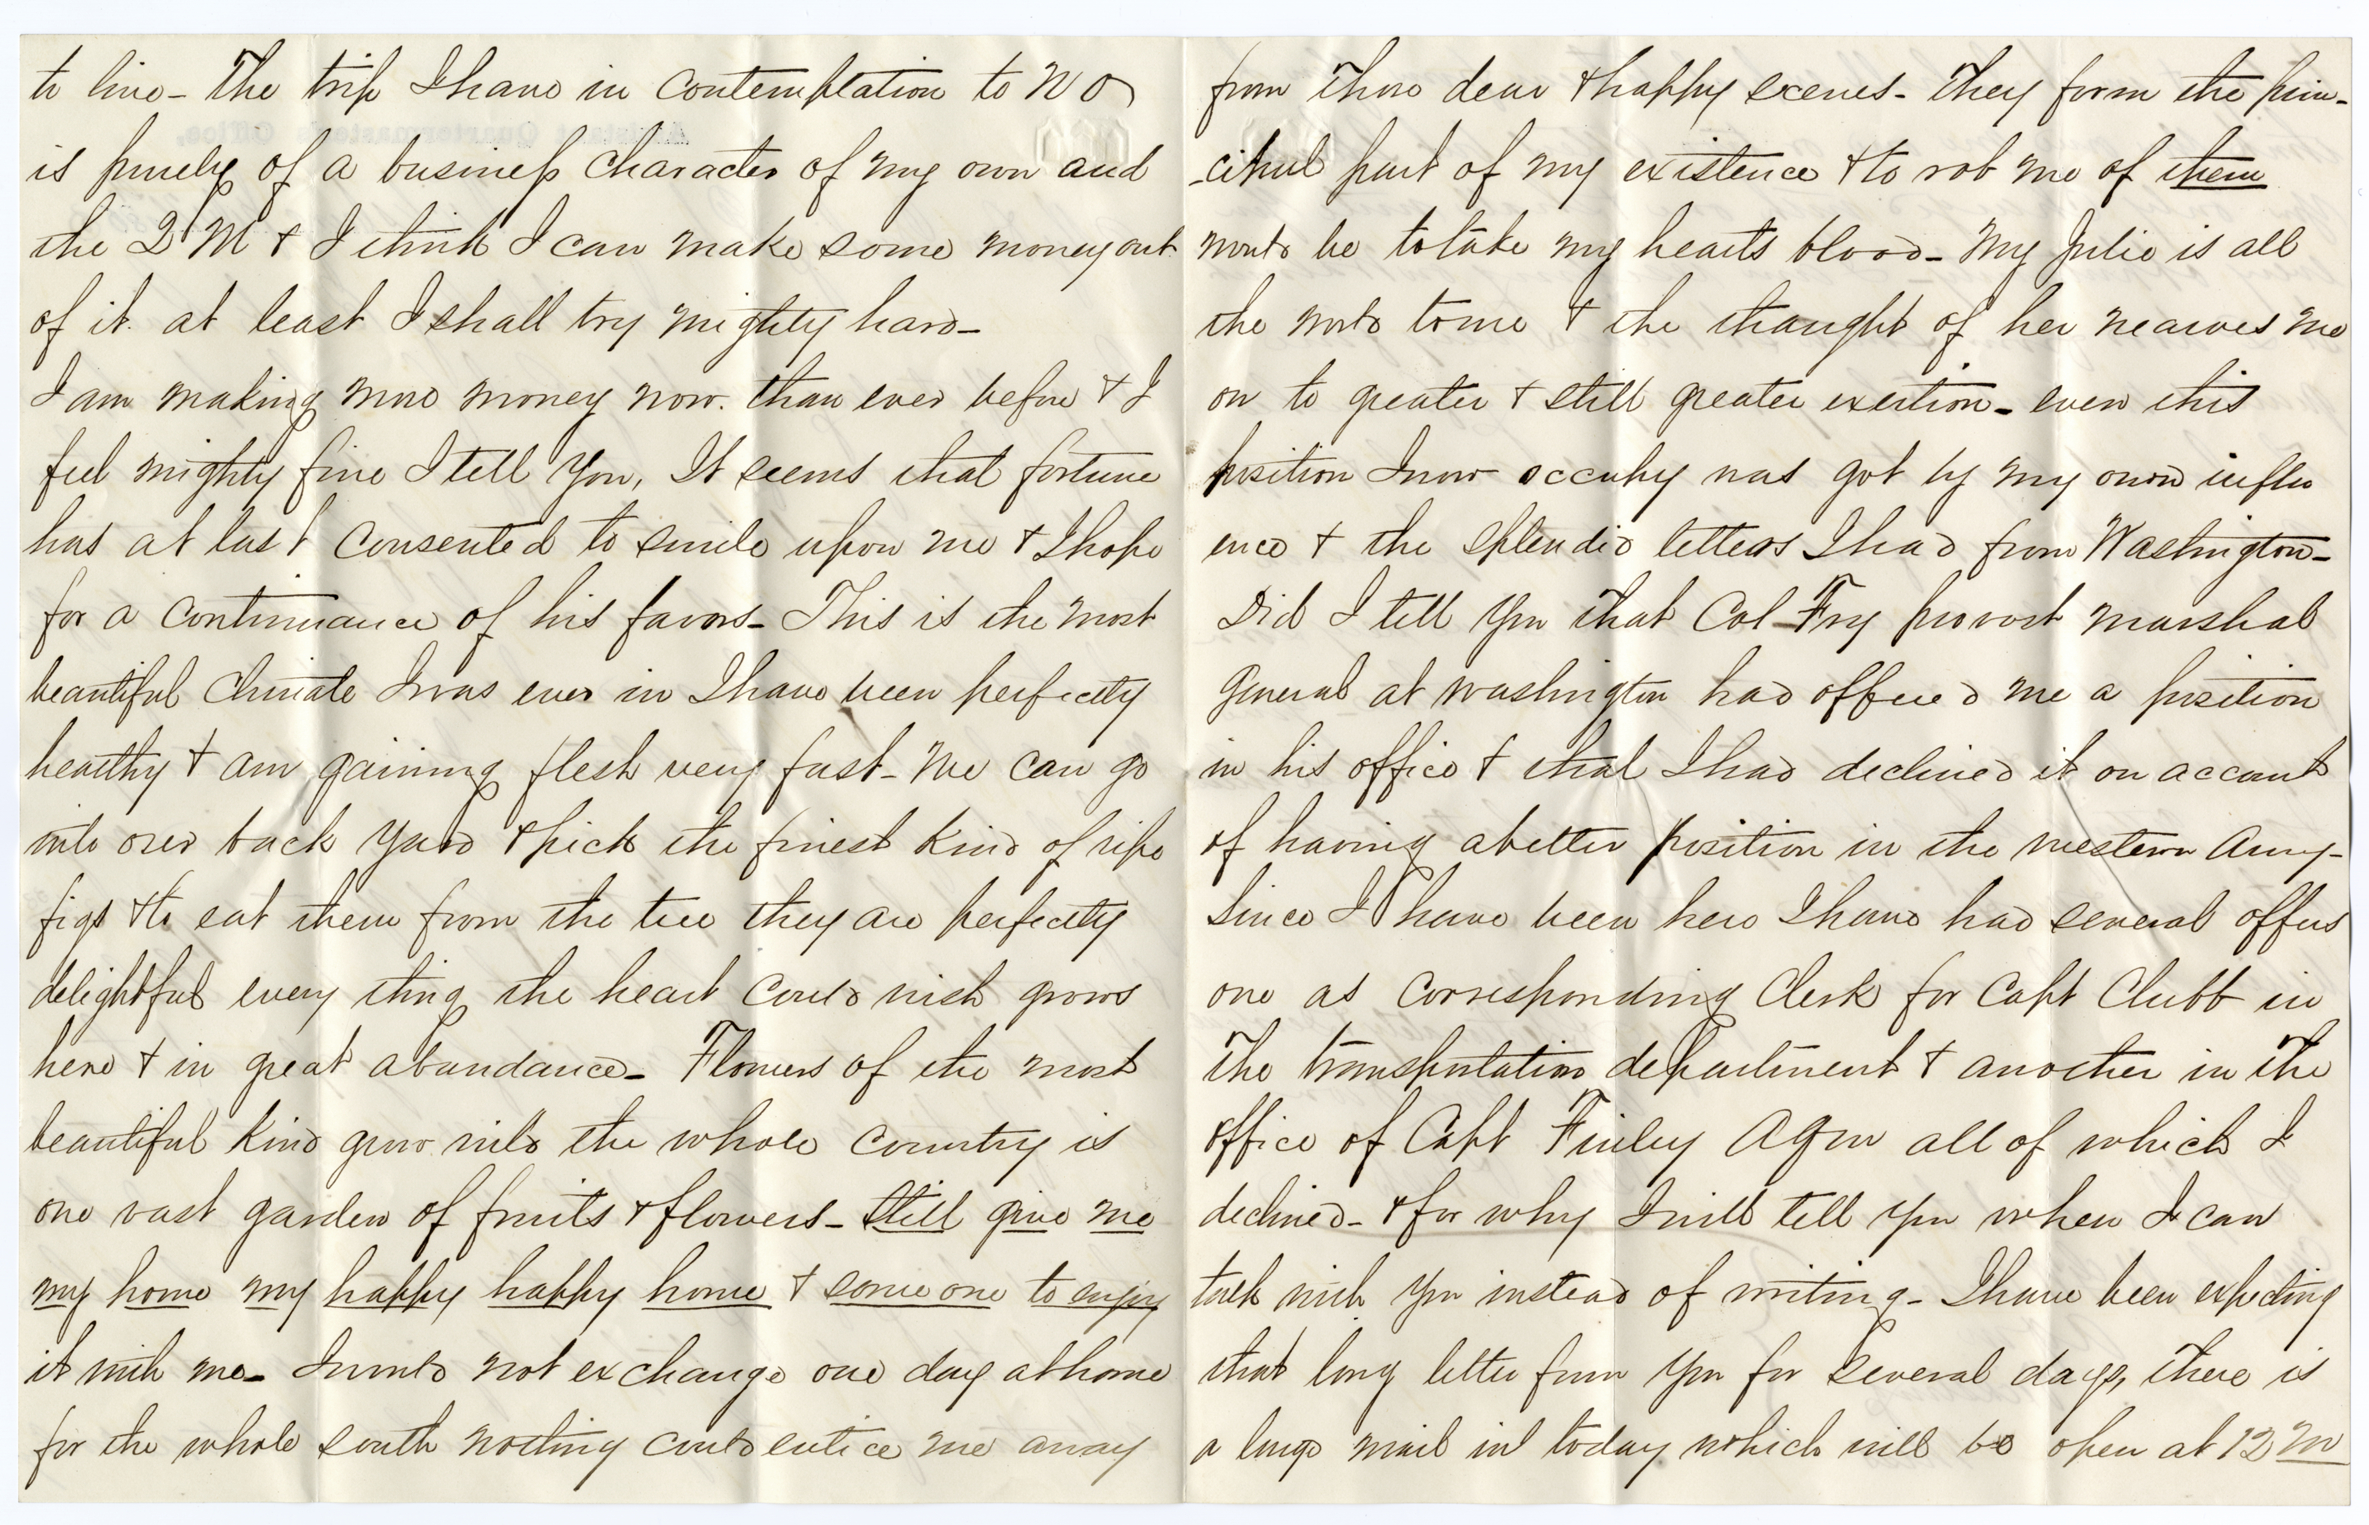 to live - The trip I have in contemplation to N O
is purely of a business character of my own and
the Q M & I think I can make some money out
of it. at least I shall try mighty hard -
I am making more money now. than ever before & I
feel mighty fine I tell you, It seems that fortune
has at last consented to smile upon me & I hope
for a continuance of his favors - This is the most
beautiful climate I was ever in I have been perfectly
healthy & am gaining flesh very fast - We can go
into our back yard & pick the finest kind of ripe
figs & to eat them from the tree they are perfectly
delightful every thing the heart could wish grows
here & in great abundance - Flowers of the most
beautiful kind grow wild the whole country is
one vast garden of fruits & flowers - Still give me
my home my happy happy home & some one to enjoy
it with me - I would not exchange one day at home
for the whole south nothing could entice me away
from those dear & happy scenes - They form the prin-
-cipal part of my existence & to rob me of them
would be to take my hearts blood - My Julie is all
the world to me & the thought of her nearves me
on to greater & still greater exertion - even this
position I now occupy was got by my own influ
ence & the splendid letters I had from Washington -
Did I tell you that Col Fry provost marshal
General at Washington had offered me a position
in his office & that I had declined it on account
of having a better position in the western Army -
Since I have been here I have had several offers
one as corresponding Clerk for Capt Clubb in
the transportation department & another in the
office of Capt Finley AQM all of which I
declined - & for why I will tell you when I can
talk with you instead of writing - I have been expecting
that long letter from you for several days, there is
a large mail in today which will be open at 12 M